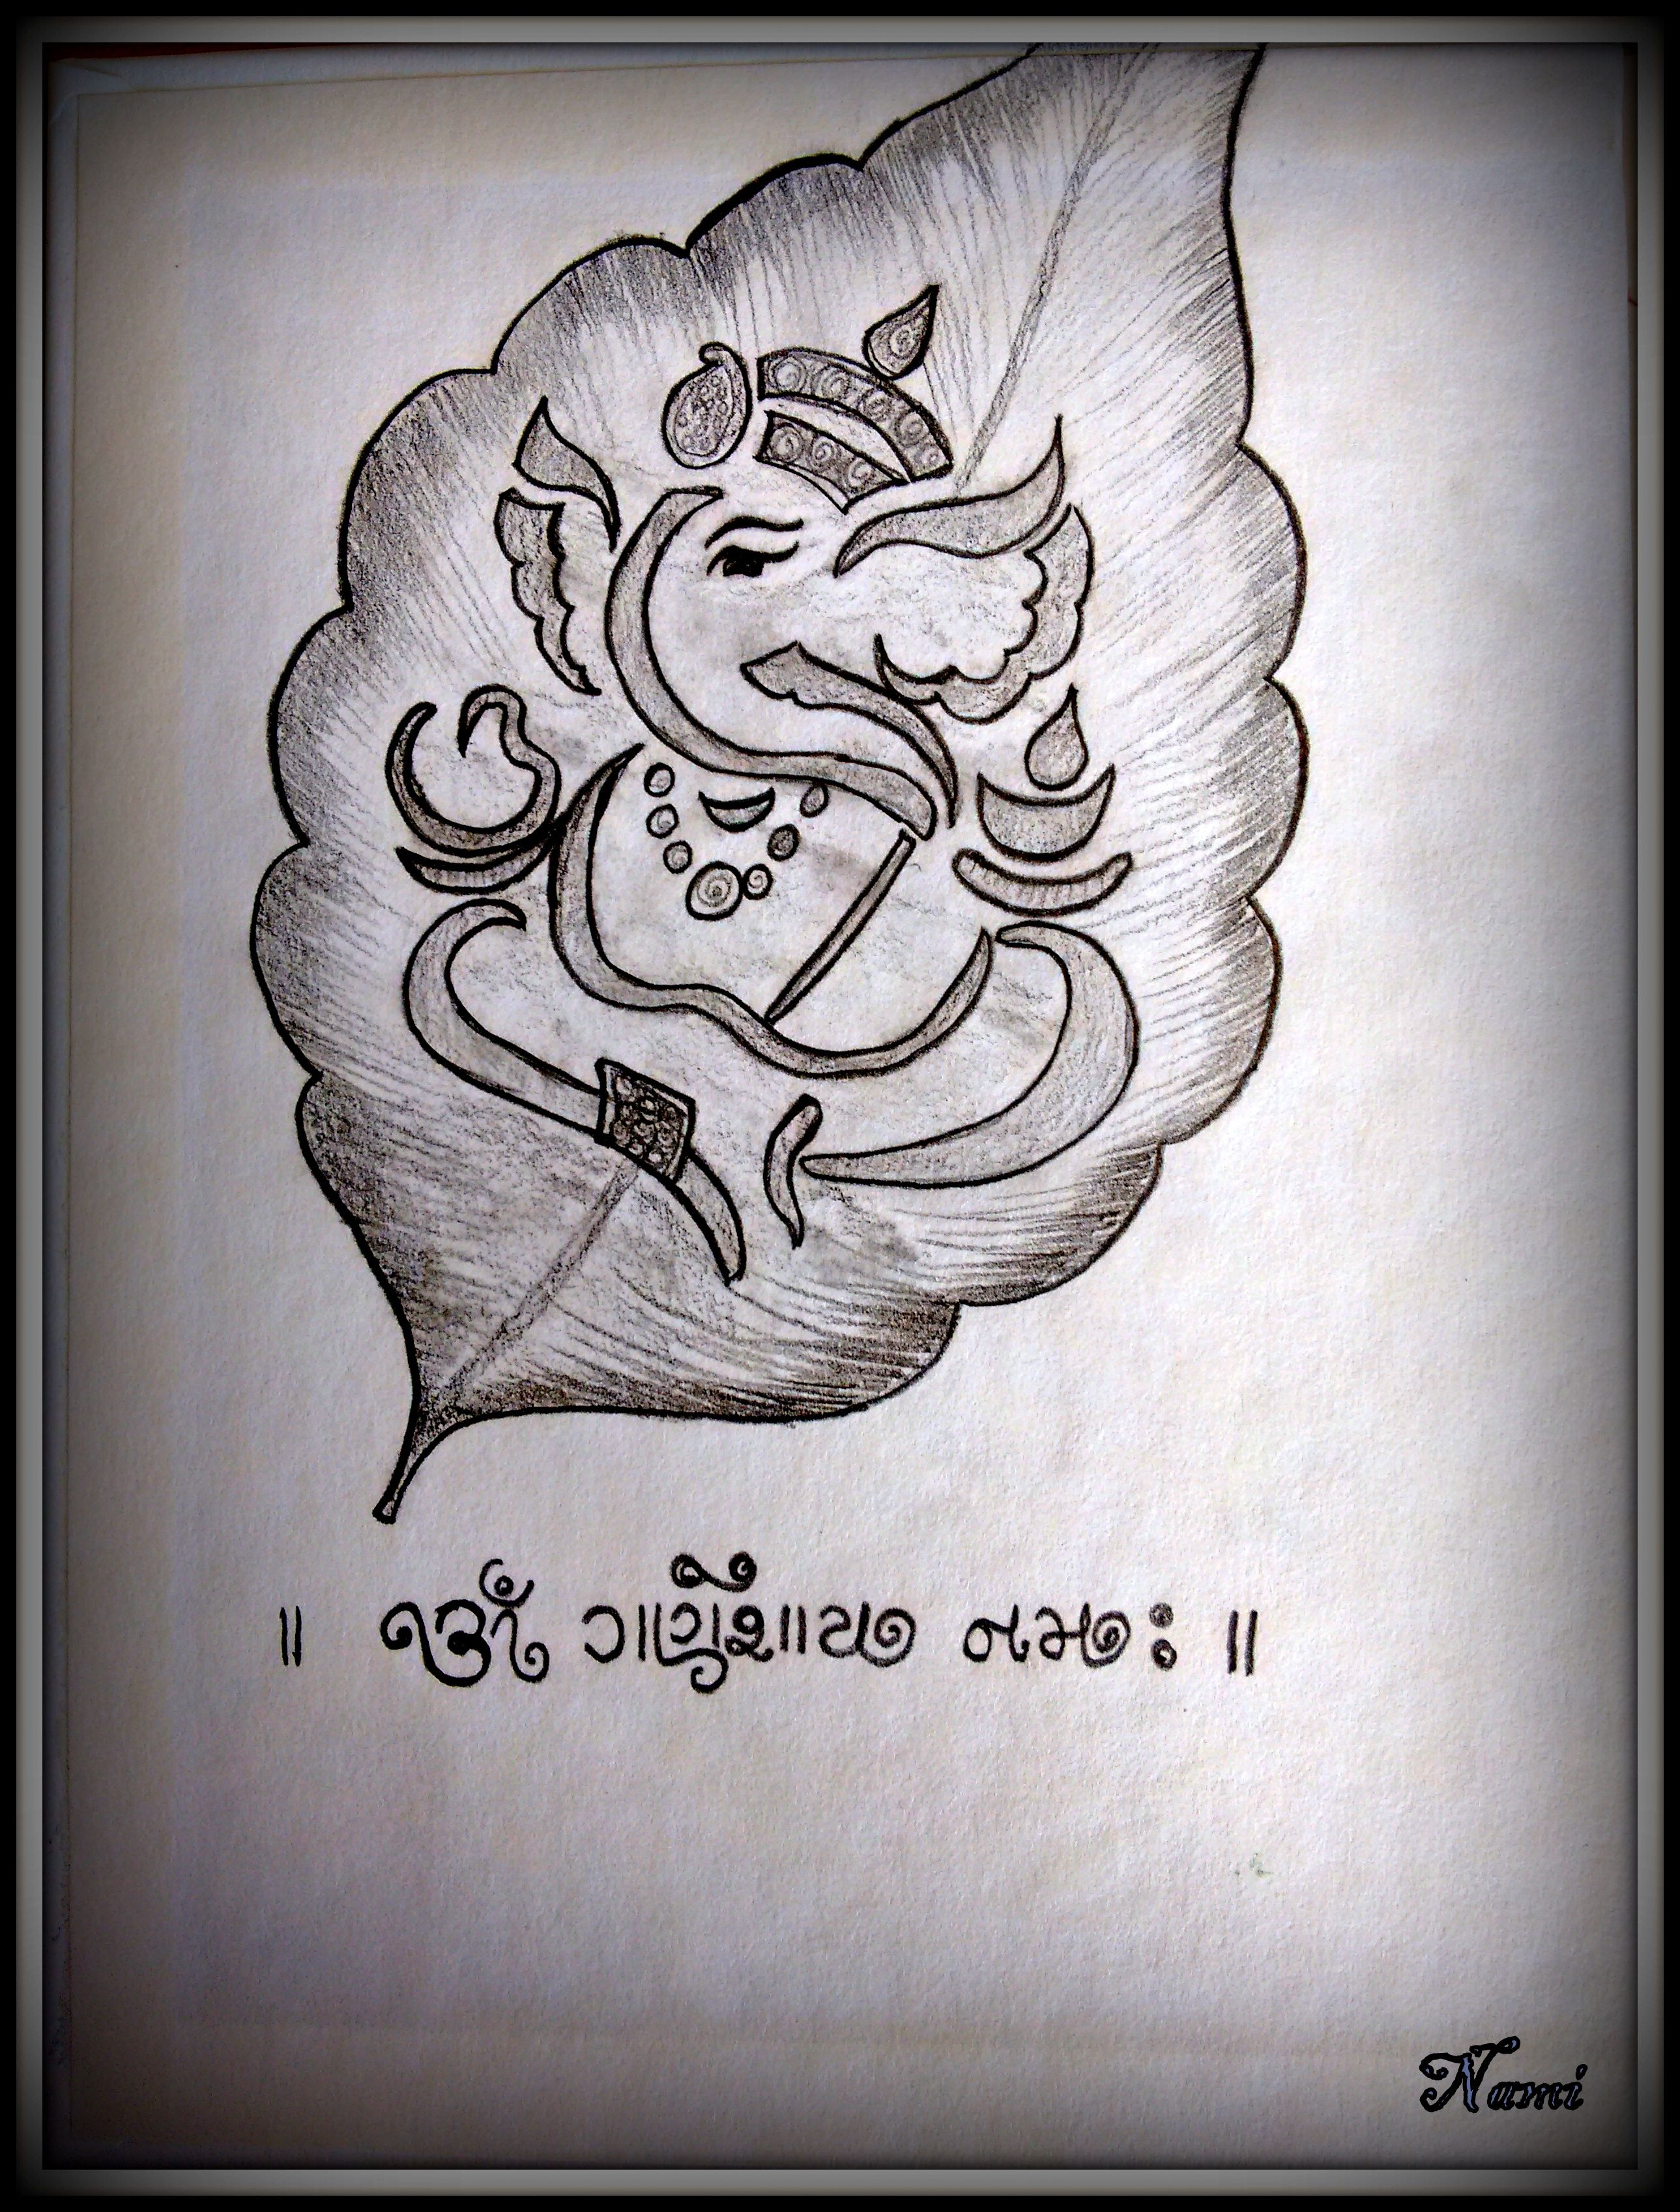 ॥ ૐ ગણેશાય નમઃ ॥
Nami